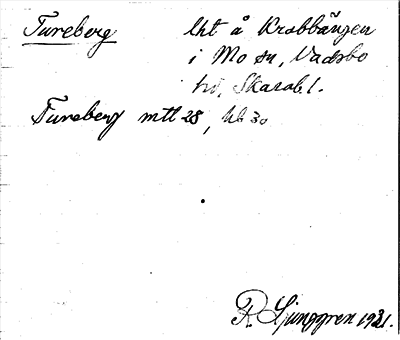 Tureberg lht å Krabbängen
i Mo sn, Vadsbo
hd, Skarab. l.
Tureberg mtl 28, hbl 30
R. Ljunggren 1931.